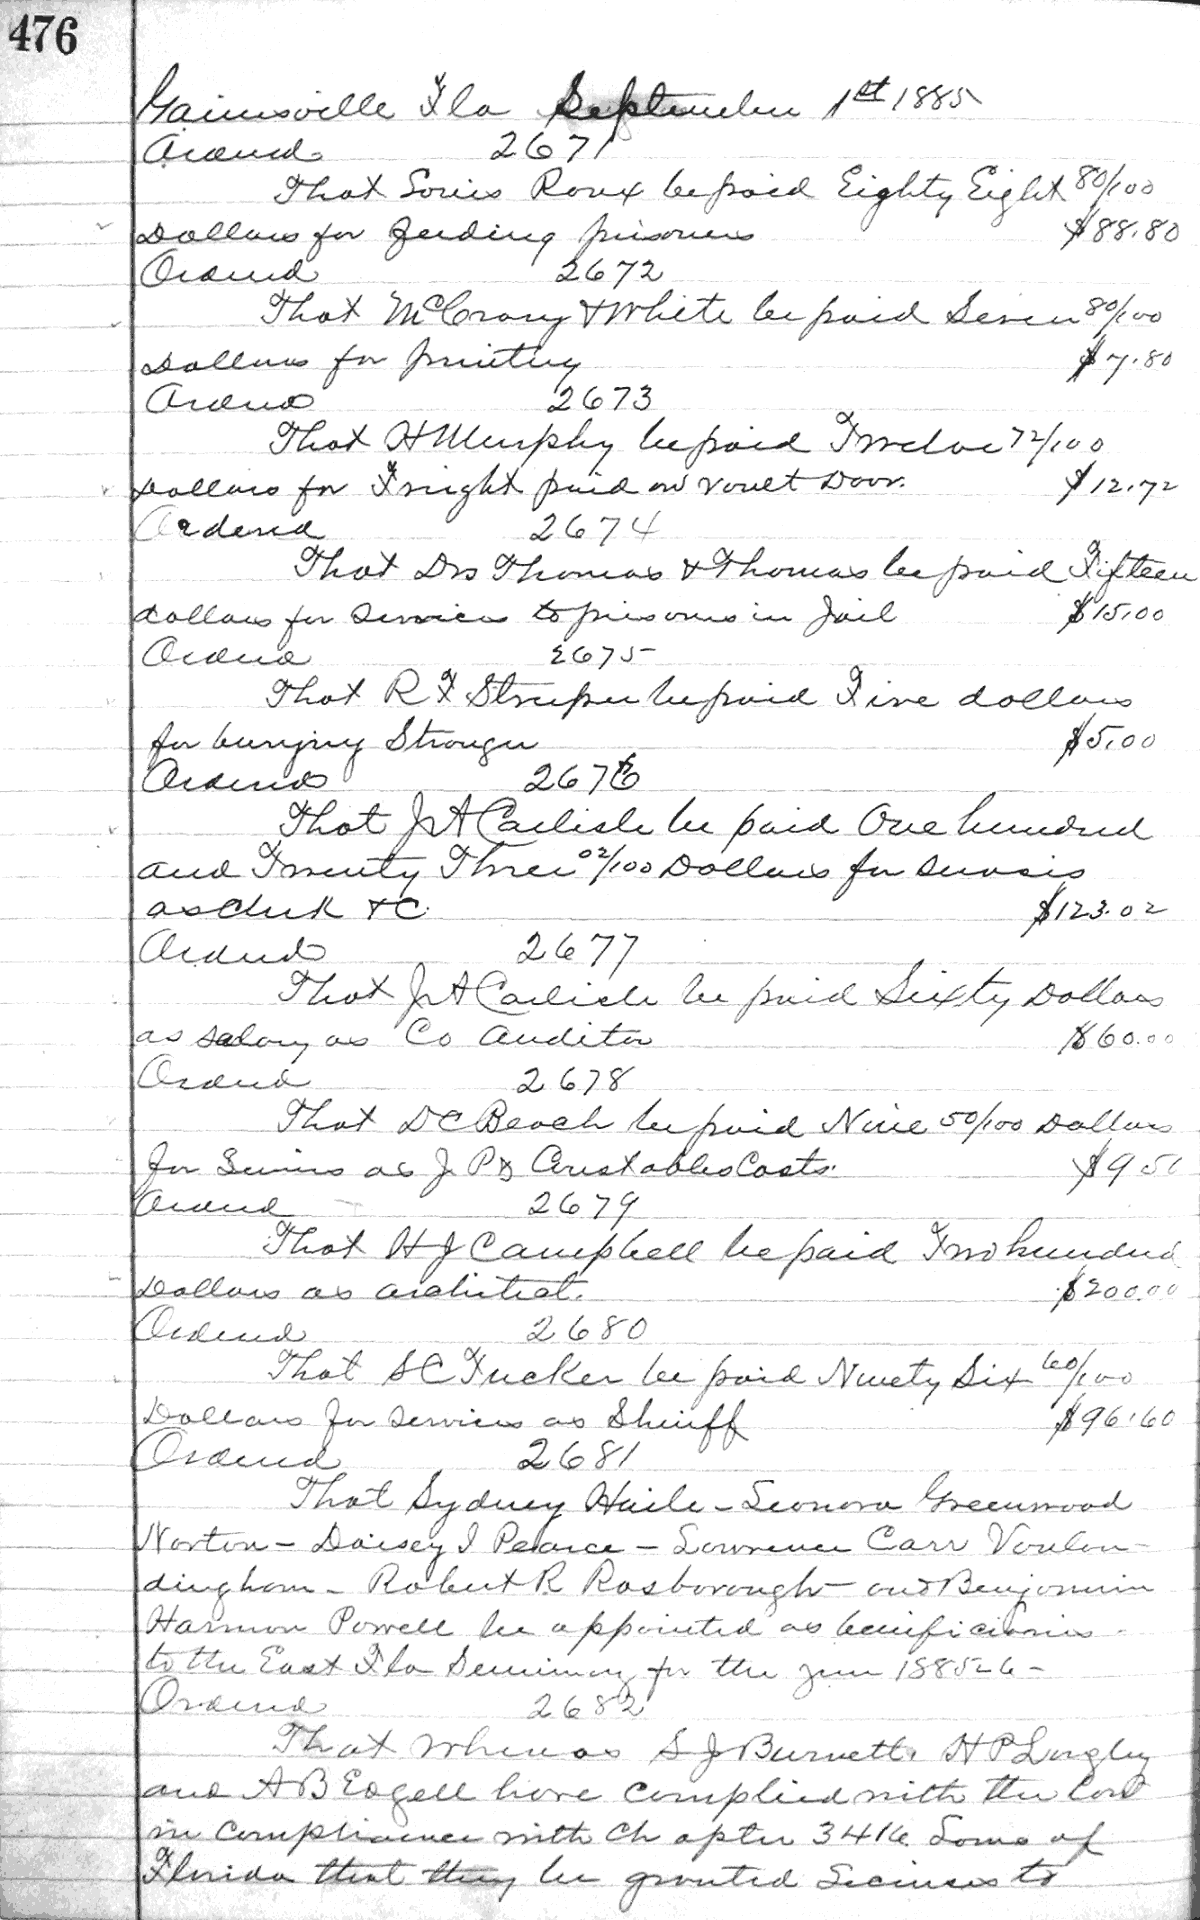 476
Gainesville Fla September 1st 1885
Ordered 2671
That Louis Roux be paid Eighty Eight 80/100
Dollars for feeding prisoners $88.80
Ordered 2672
That McCrary & White be paid Seven 80/100
Dollars for printing $7.80
Ordered 2673
That H Murphy be paid Twelve 72/100
Dollars for Freight paid on Vault Door. $12.72
Ordered 2674
That Drs Thomas & Thomas be paid Fifteen
dollars for services to prisoners in Jail $15.00
Ordered 2675
That R F be paid Five dollars
for burying Stranger $5.00
Ordered 2676
That J A Carlisle be paid One hundred
and Twenty Three 02/100 Dollars for servises
as Clerk &C. $123.02
Ordered 2677
That J A Carlisle be paid Sixty Dollars
as salary as Co Auditor $60.00
Ordered 2678
That D C Beach be paid Nine 50/100 Dollars
for Services as J P & Constables Costs. $9.50
Ordered 2679
That H J Campbell be paid Two hundred
Dollars as architect. $200.00
Ordered 2680
That S C Tucker be paid Ninety Six 60/100
Dollars for services as Sheriff $96.60
Ordered 2681
That Sydney Haile - Leonora Greenwood
Norton - Daisey I Pearce - Lawrence Carr
dingham - Robert R Rosborough - and Benjamin
Harmon Powell be appointed as beneficiaries
to the East Fla Seminary for the year 1885-6 -
Ordered 2682
That Whereas S J Burnett. H P Langley
and A B Edgell have complied with the law
in compliance with Chapter 3416 Laws of
Florida that they be granted Licenses to